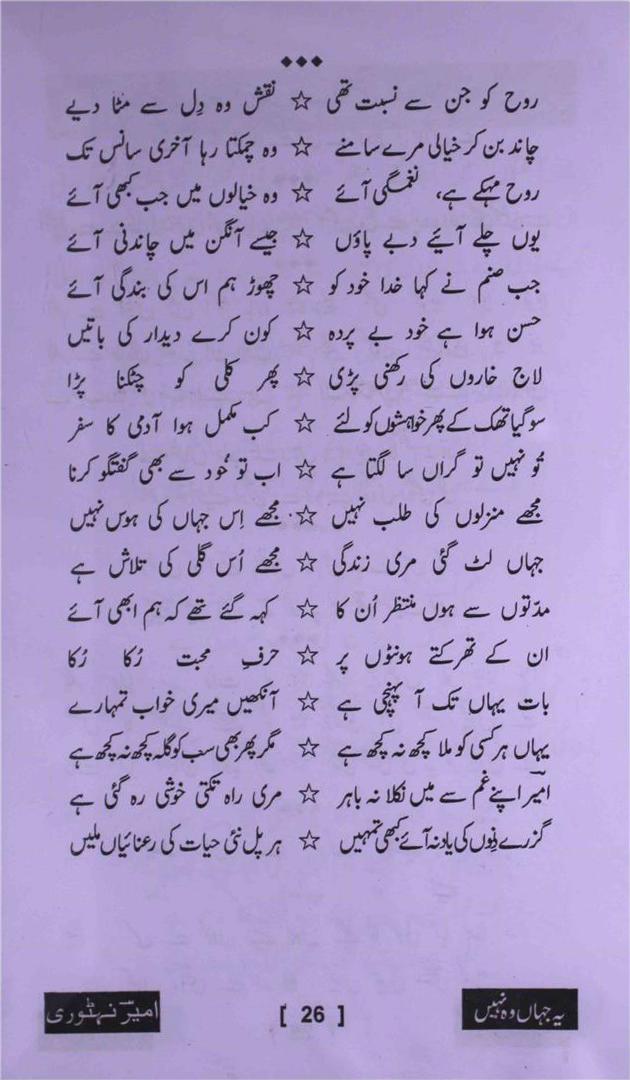 روح کو جن سے نسبت تھی ☆ نقش وہ دِل سے مٹا دیے
چاند بن کر خیالی مرے سامنے ☆ وہ چمکتا رہا آخری سانس تک
روح مہکے ہے، نغمگی آئے ☆ وہ خیالوں میں جب کبھی آئے
یوں چلے آئیے دبے پاؤں ☆ جیسے آنگن میں چاندنی آئے
جب صنم نے کہا خدا خود کو ☆ چھوڑ ہم اس کی بندگی آئے
حسن ہوا ہے خود بے پردہ ☆ کون کرے دیدار کی باتیں
لاج خاروں کی رکھنی پڑی ☆ پھر کلی کو چٹکنا پڑا
سو گیا تھک کے پھر خواہشوں کو لئے ☆ کب مکمل ہوا آدمی کا سفر
تُو نہیں تو گراں سا لگتا ہے ☆ اب تو خُود سے بھی گفتگو کرنا
مجھے منزلوں کی طلب نہیں ☆ مجھے اِس جہاں کی ہوس نہیں
جہاں لٹ گئی مری زندگی ☆ مجھے اُس گلی کی تلاش ہے
مدّتوں سے ہوں منتظر اُن کا ☆ کہہ گئے تھے کہ ہم ابھی آئے
ان کے تھرکتے ہونٹوں پر ☆ حرفِ محبت رُکا رُکا
بات یہاں تک آ پہنچی ہے ☆ آنکھیں میری خواب تمہارے
یہاں ہر کسی کو ملا کچھ نہ کچھ ہے ☆ مگر پھر بھی سب کو گلہ کچھ نہ کچھ ہے
امیرؔ اپنے غم سے میں نکلا نہ باہر ☆ مری راہ تکتی خوشی رہ گئی ہے
گزرے دِنوں کی یاد نہ آئے کبھی تمہیں ☆ ہر پل نئی حیات کی رعنائیاں ملیں
یہ جہاں وہ نہیں [ 26 ] امیرؔ نہٹوری